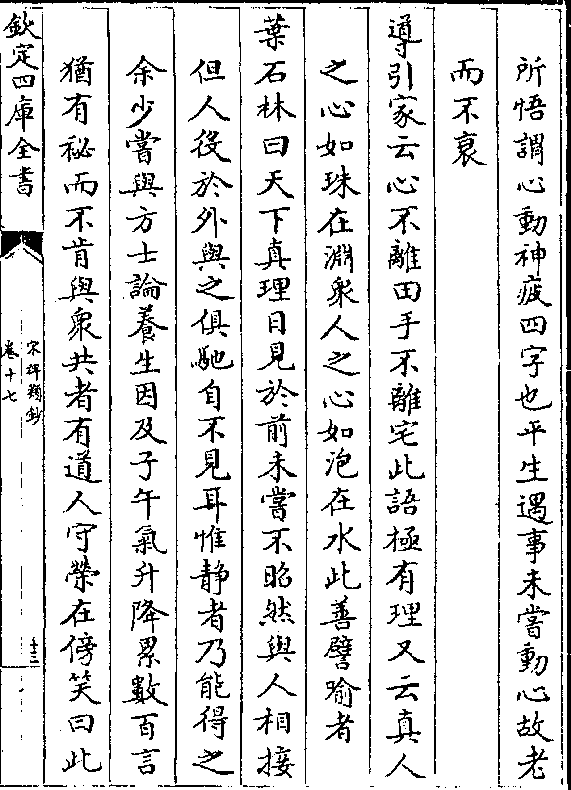 所悟謂心動神疲四字也平生遇事未嘗動心故老
而不衰
導引家云心不離田手不離宅此語極有理又云真人
之心如珠在淵衆人之心如泡在水此善譬喻者
葉石林曰天下真理日見於前未嘗不昭然與人相接
但人役於外與之俱馳自不見耳惟静者乃能得之
余少嘗與方士論養生因及子午氣升降累數百言
猶有秘而不肯與衆共者有道人守榮在傍笑曰此
欽定四庫全書
宋稗類鈔
卷十七
十三